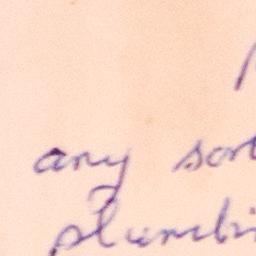 any sort
plumbi